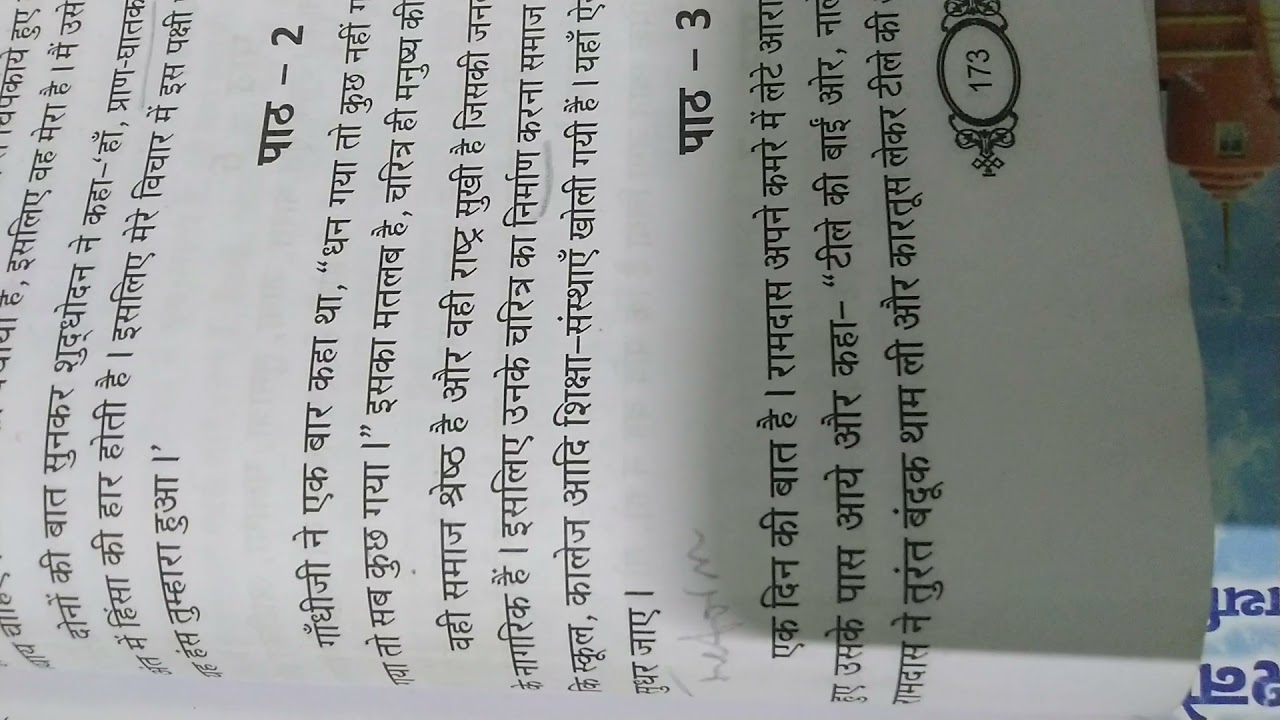 है, इसलिए वह मेरा है। मैं उसे
दोनों की बात सुनकर शुद्धोदन ने कहा-'हाँ, प्राण-घातक
में हिंसा की हार होती है। इसलिए मेरे विचार में इस पक्षी
हंस तुम्हारा हुआ।'
पाठ - 2
गाँधीजी ने एक बार कहा था, "धन गया तो कुछ नहीं
तो सब कुछ गया।" इसका मतलब है, चरित्र ही मनुष्य की
वही समाज श्रेष्ठ है और वही राष्ट्र सुखी है जिसकी
के नागरिक हैं। इसलिए उनके चरित्र का निर्माण करना समाज
कि स्कूल, कालेज आदि शिक्षा-संस्थाएँ खोली गयी हैं। यहाँ
सुधर जाए।
पाठ - 3
एक दिन की बात है। रामदास अपने कमरे में लेटे
हुए उसके पास आये और कहा- "टीले की बाईं ओर,
रामदास ने तुरंत बंदूक थाम ली और कारतूस लेकर टीले की
173